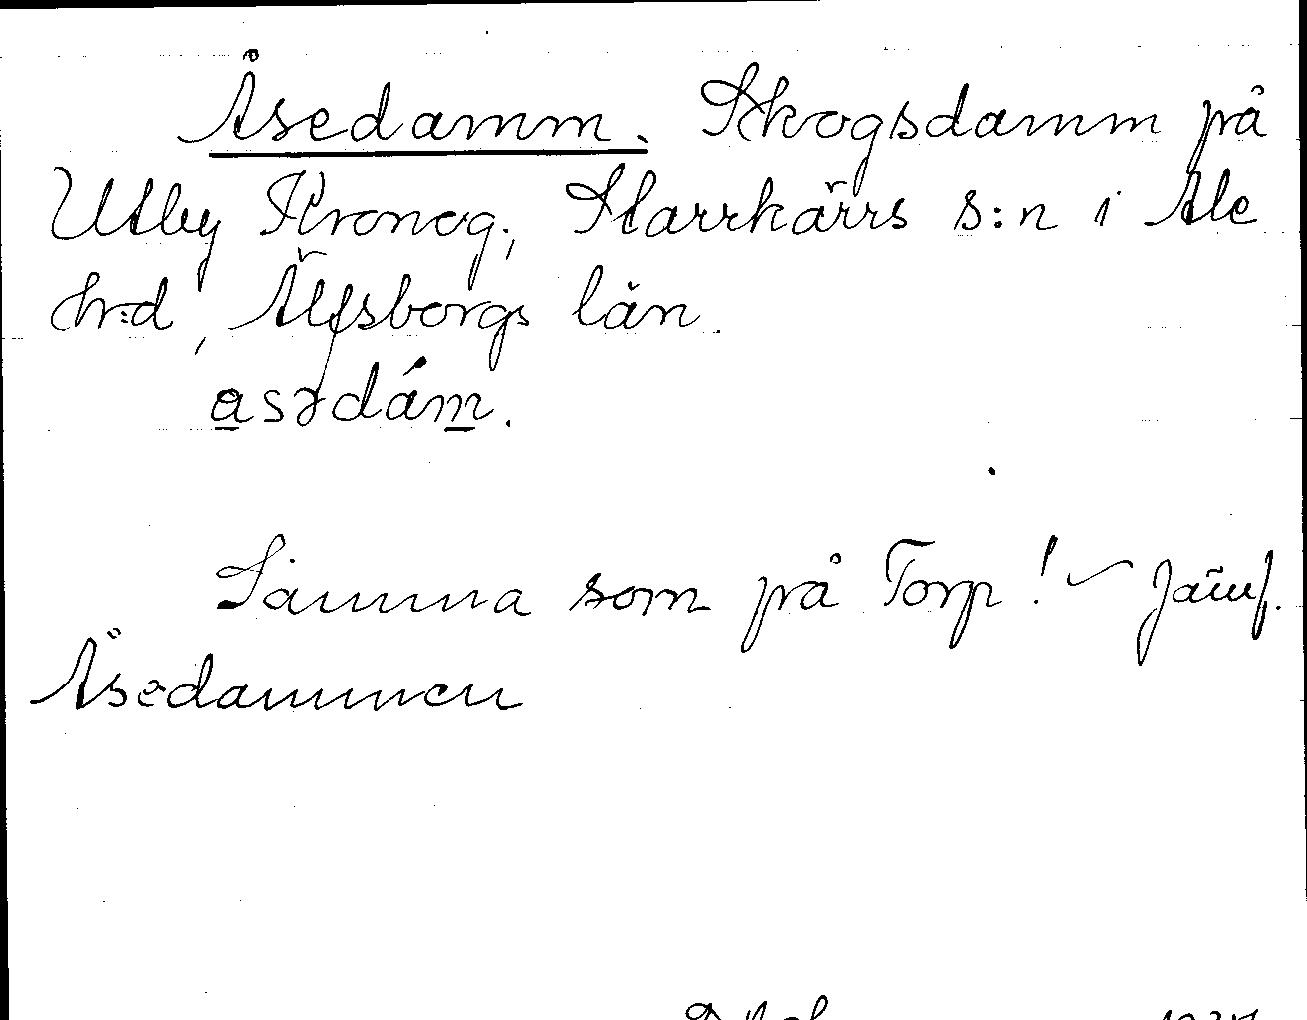 Åsedamm. Skogsdamm på
Utby Kronog., Starrkärrs s:n i Ale
hrd, Älfsborgs län.
asədám.
Samma som på Torp! Jämf.
Åsedammen